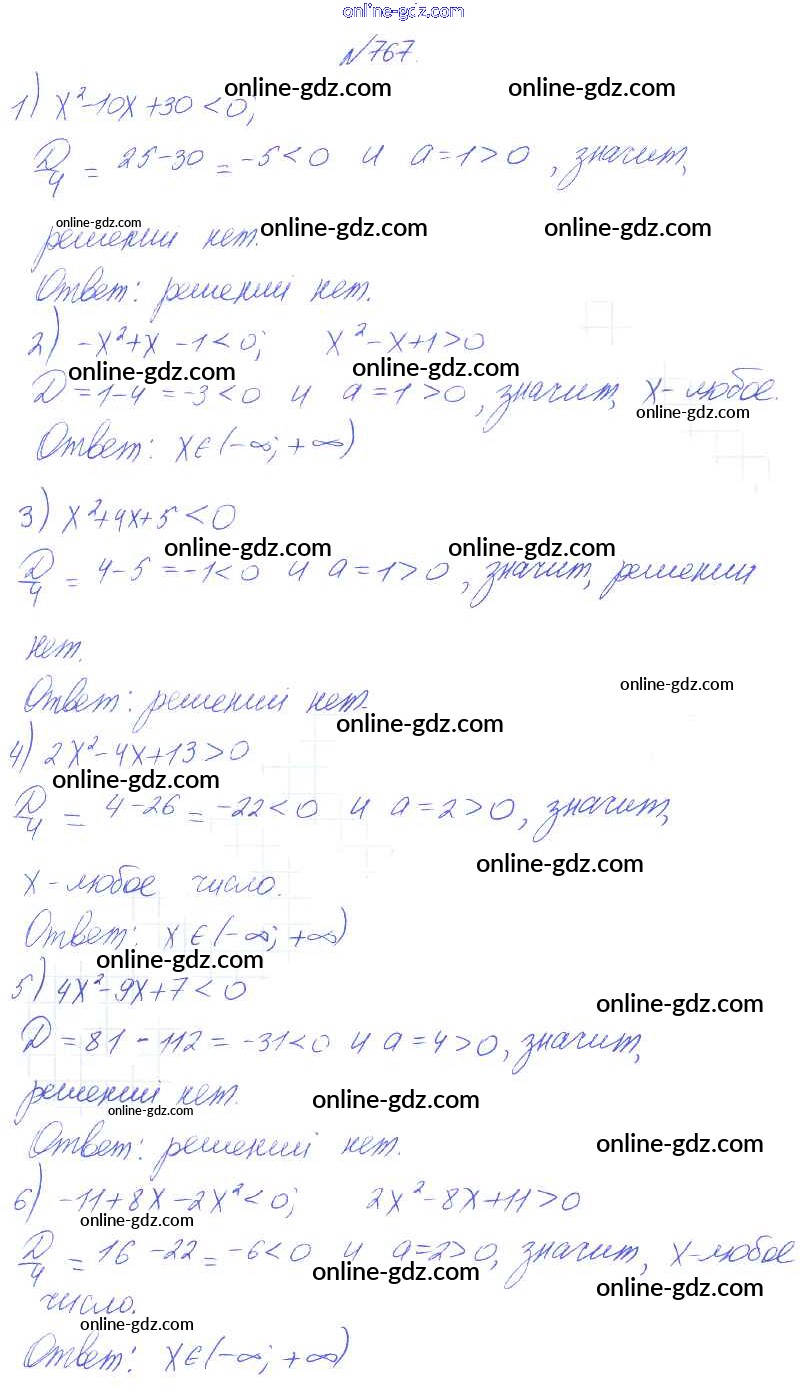 online-gdz.com
№767.
1) x²-10x+30<0;
online-gdz.com online-gdz.com
D/4 = 25-30 = -5<0 и a=1>0, значит,
online-gdz.com online-gdz.com online-gdz.com
решений нет.
Ответ: решений нет.
2) -x²+x-1<0; x²-x+1>0
online-gdz.com online-gdz.com
D=1-4=-3<0 и a=1>0, значит, x-любое.
online-gdz.com
Ответ: x∈(-∞; +∞)
3) x²+4x+5<0
online-gdz.com online-gdz.com
D/4 = 4-5=-1<0 и a=1>0, значит, решений
нет.
online-gdz.com
Ответ: решений нет.
online-gdz.com
4) 2x²-4x+13>0
online-gdz.com
D/4 = 4-26=-22<0 и a=2>0, значит,
online-gdz.com
x-любое число.
Ответ: x∈(-∞; +∞)
online-gdz.com
5) 4x²-9x+7<0
online-gdz.com
D=81-112=-31<0 и a=4>0, значит,
решений нет.
online-gdz.com online-gdz.com
Ответ: решений нет.
online-gdz.com
6) -11+8x-2x²<0; 2x²-8x+11>0
online-gdz.com
D/4 = 16-22=-6<0 и a=2>0, значит, x-любое
online-gdz.com online-gdz.com
число.
online-gdz.com
Ответ: x∈(-∞; +∞)